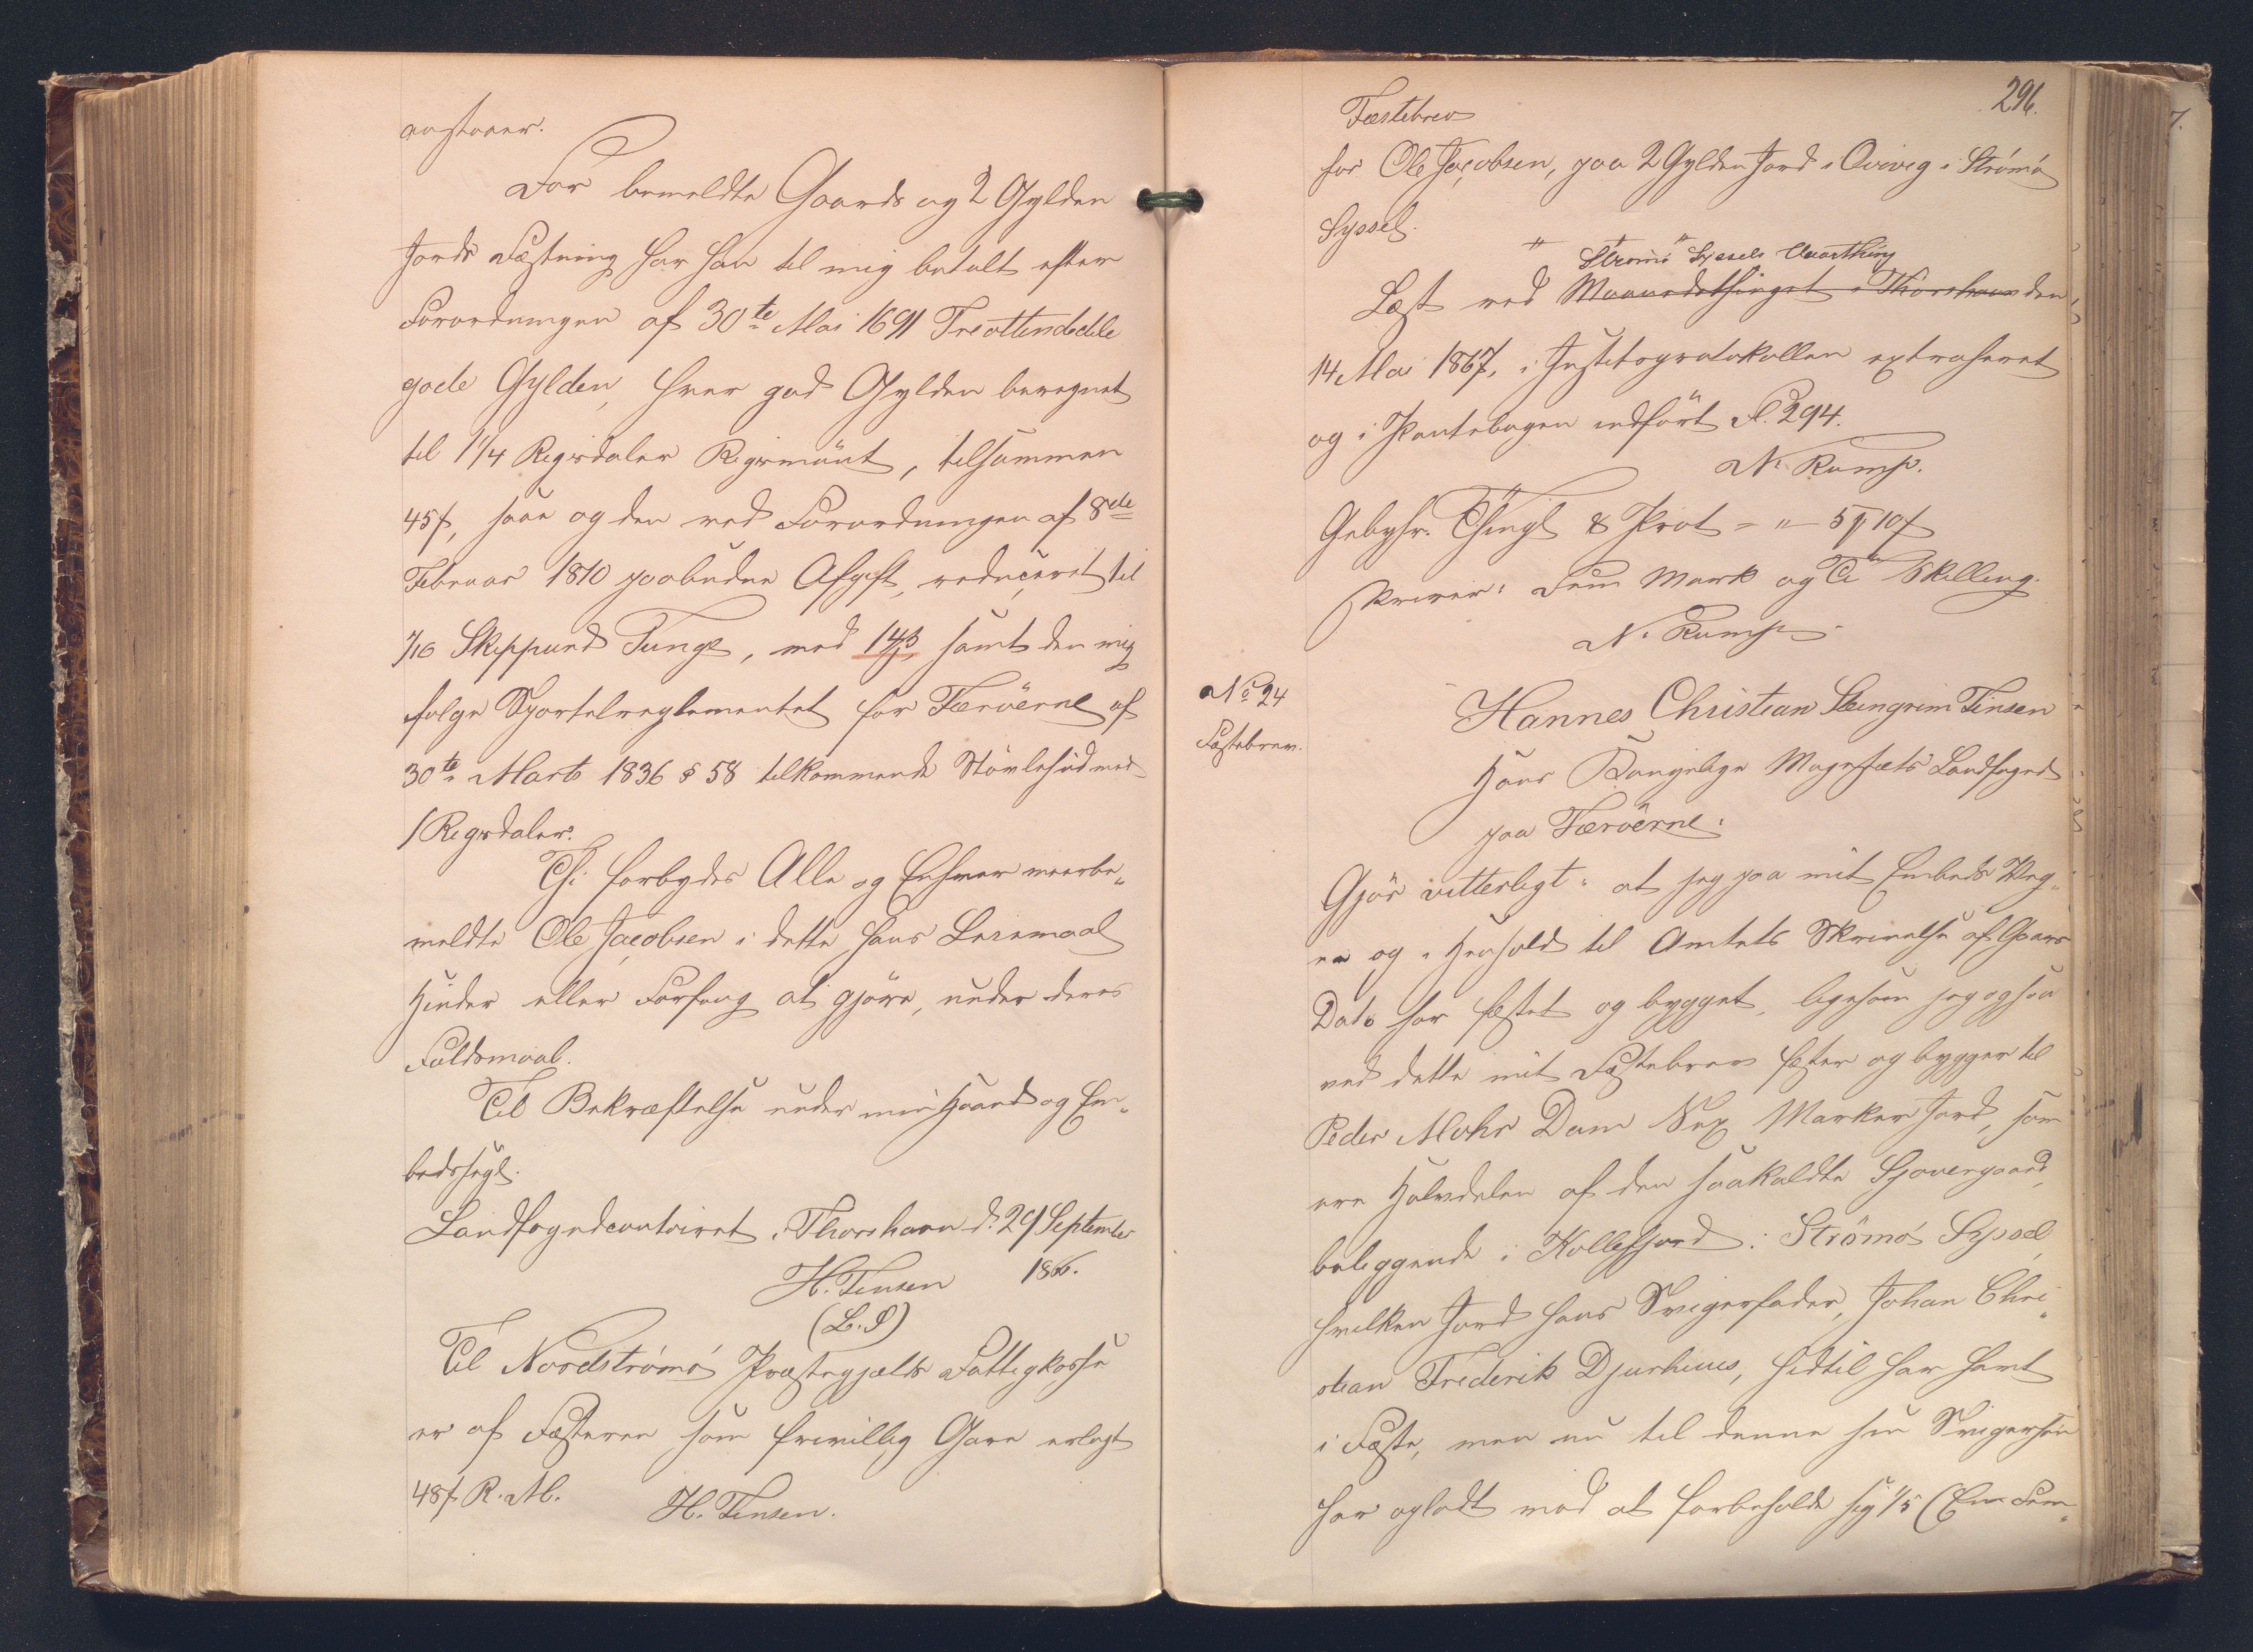 anstaaer.
For bemeldte Gaards og 2 Gylden
Jords Fæstning har han til mig betalt efter
Forordningen af 30te Mai 1691 Treottendedele
gode Gylden, hver god Gylden beregnet
til 1 1/4 Rigsdaler Rigsmönt, tilsammen
45f, saa og den ved Forordningen af 8de
Februar 1810 paabudne Afgift, reduceret til
1/16 Skippund Tunge, med 14β, samt den mig
følge Sportelreglementet for Færöerne af
30te Marts 1836 § 58 tilkommende Stövlehud med
1 Rigsdaler.
Thi forbydes Alle og Enhver meerbe„
meldte Ole Jacobsen i dette hans Leiemaal
Hinder eller Forfang at gjöre, under deres
Faldsmaal.
Til Bekræftelse under min Haand og Em„
bedssegl.
Landfogedcontoiret i Thorshavn d. 29 September
H. Tinsen 1866.
(L.S)
Til Nordströmö Præstegjælds Fattigkasse
er af Fæsteren som frivillig Gave erlagt
48f R.M.
H. Tinsen.
296.
Fæstebrev
for Ole Jacobsen, paa 2 Gylden Jord i Qvivig i Strömö
Syssel.
Strömö Syssels Vaarthing
Læst ved Maanedsthinget i Thorshavn den
14 Mai 1867, i Justitsprotokollen extraheret
og i Pantebogen indfört Fl. 294.
N. Rump.
Gebyhr. Thingl & Prot - " - 5# 10f
skriver: Fem Mark og Ti Skilling.
N. Rump
No 24
Fæstebrev.
Hannes Christian Steingrim Finsen
Hans Kongelige Majestæts Landfoged
paa Færöerne:
Gjör vitterligt: at jeg paa mit Embeds Veg„
ne og i Henhold til Amtets Skrivelse af Gaars
Dato har fæstet og bygget, ligesom jeg ogsaa
ved dette mit Fæstebrev fæster og bygger til
Peder Mohr Dam Sex Marker Jord, som
ere Halvdelen af den saakaldte Sjovergaard,
beliggende i Kollefjord i Strömö Syssel,
hvilken Jord hans Svigerfader, Johan Chri„
stian Frederik Djurhuus, hidtil har havt
i Fæste, men nu til denne sin Svigersön
har opladt mod at forbeholde sig 1/5 (Een Fem„